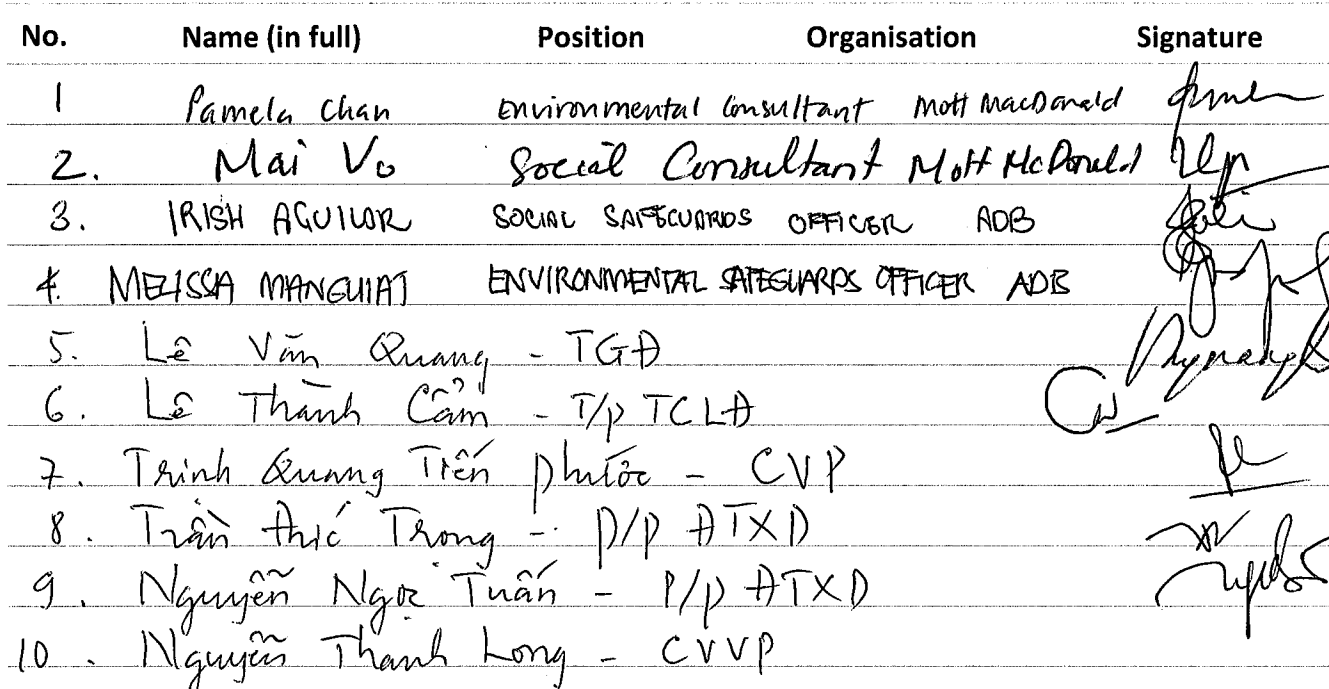 No. Name (in full) Position Organisation Signature
1 Pamela Chan Environmental Consultant Mott MacDonald
2. Mai Vo Social Consultant Mott McDonald
3. IRISH AGUILOR SOCIAL SAFEGUARDS OFFICER ADB
4. MELISSA MANGUIAT ENVIRONMENTAL SAFEGUARDS OFFICER ADB
5. Lê Văn Quang - TGĐ
6. Lê Thành Cẩm - T/p TCLĐ
7. Trịnh Quang Tiến Phước - CVP
8. Trần Thức Trọng - P/P ĐTXD
9. Nguyễn Ngọc Tuấn - P/p ĐTXD
10. Nguyễn Thanh Long - CVVP